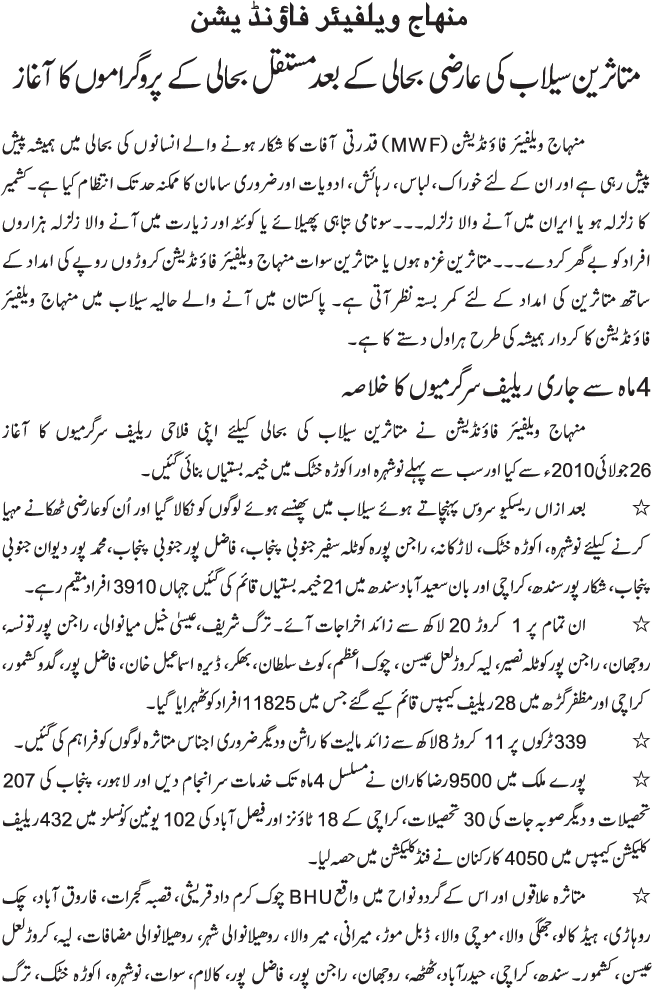 منہاج ویلفیئر فاؤنڈیشن
متاثرین سیلاب کی عارضی بحالی کے بعد مستقل بحالی کے پروگراموں کا آغاز
منہاج ویلفیئر فاؤنڈیشن (MWF) قدرتی آفات کا شکار ہونے والے انسانوں کی بحالی میں ہمیشہ پیش
پیش رہی ہے اور ان کے لئے خوراک، لباس، رہائش، ادویات اور ضروری سامان کا ممکنہ حد تک انتظام کیا ہے۔ کشمیر
کا زلزلہ ہو یا ایران میں آنے والا زلزلہ۔۔۔ سونامی تباہی پھیلائے یا کوئٹہ اور زیارت میں آنے والا زلزلہ ہزاروں
افراد کو بے گھر کردے۔۔۔ متاثرین غزہ ہوں یا متاثرین سوات منہاج ویلفیئر فاؤنڈیشن کروڑوں روپے کی امداد کے
ساتھ متاثرین کی امداد کے لئے کمر بستہ نظر آتی ہے۔ پاکستان میں آنے والے حالیہ سیلاب میں منہاج ویلفیئر
فاؤنڈیشن کا کردار ہمیشہ کی طرح ہراول دستے کا ہے۔
4 ماہ سے جاری ریلیف سرگرمیوں کا خلاصہ
منہاج ویلفیئر فاؤنڈیشن نے متاثرین سیلاب کی بحالی کیلئے اپنی فلاحی ریلیف سرگرمیوں کا آغاز
26 جولائی 2010ء سے کیا اور سب سے پہلے نوشہرہ اور اکوڑہ خٹک میں خیمہ بستیاں بنائی گئیں۔
☆ بعد ازاں ریسکیو سروس پہنچاتے ہوئے سیلاب میں پھنسے ہوئے لوگوں کو نکالا گیا اور اُن کو عارضی ٹھکانے مہیا
کرنے کیلئے نوشہرہ، اکوڑہ خٹک، لاڑکانہ، راجن پورہ کوٹلہ سفیر جنوبی پنجاب، فاضل پور جنوبی پنجاب، محمد پور دیوان جنوبی
پنجاب، شکار پور سندھ، کراچی اور بان سعید آباد سندھ میں 21 خیمہ بستیاں قائم کی گئیں جہاں 3910 افراد مقیم رہے۔
☆ ان تمام پر 1 کروڑ 20 لاکھ سے زائد اخراجات آئے۔ ترگ شریف، عیسیٰ خیل میانوالی، راجن پور تونسہ،
روجھان، راجن پور کوٹلہ نصیر، لیہ کروڑ لعل عیسن، چوک اعظم، کوٹ سلطان، بھکر، ڈیرہ اسماعیل خان، فاضل پور، گدو کشمور،
کراچی اور مظفر گڑھ میں 28 ریلیف کیمپس قائم کیے گئے جس میں 11825 افراد کو ٹھہرایا گیا۔
☆ 339 ٹرکوں پر 11 کروڑ 8 لاکھ سے زائد مالیت کا راشن و دیگر ضروری اجناس متاثرہ لوگوں کو فراہم کی گئیں۔
☆ پورے ملک میں 9500 رضا کاران نے مسلسل 4 ماہ تک خدمات سر انجام دیں اور لاہور، پنجاب کی 207
تحصیلات و دیگر صوبہ جات کی 30 تحصیلات، کراچی کے 18 ٹاؤنز اور فیصل آباد کی 102 یونین کونسلز میں 432 ریلیف
کلیکشن کیمپس میں 4050 کارکنان نے فنڈ کلیکشن میں حصہ لیا۔
☆ متاثرہ علاقوں اور اس کے گردونواح میں واقع BHU چوک کرم داد قریشی، قصبہ گجرات، فاروق آباد، چک
روہاڑی، ہیڈ کالو، جھگی والا، موچی والا، ڈبل موڑ، میرانی، میر والا، روھیلانوالی شہر، روھیلانوالی مضافات، لیہ، کروڑ لعل
عیسن، کشمور۔ سندھ، کراچی، حیدرآباد، ٹھٹھہ، روجھان، راجن پور، فاضل پور، کالام، سوات، نوشہرہ، اکوڑہ خٹک، ترگ